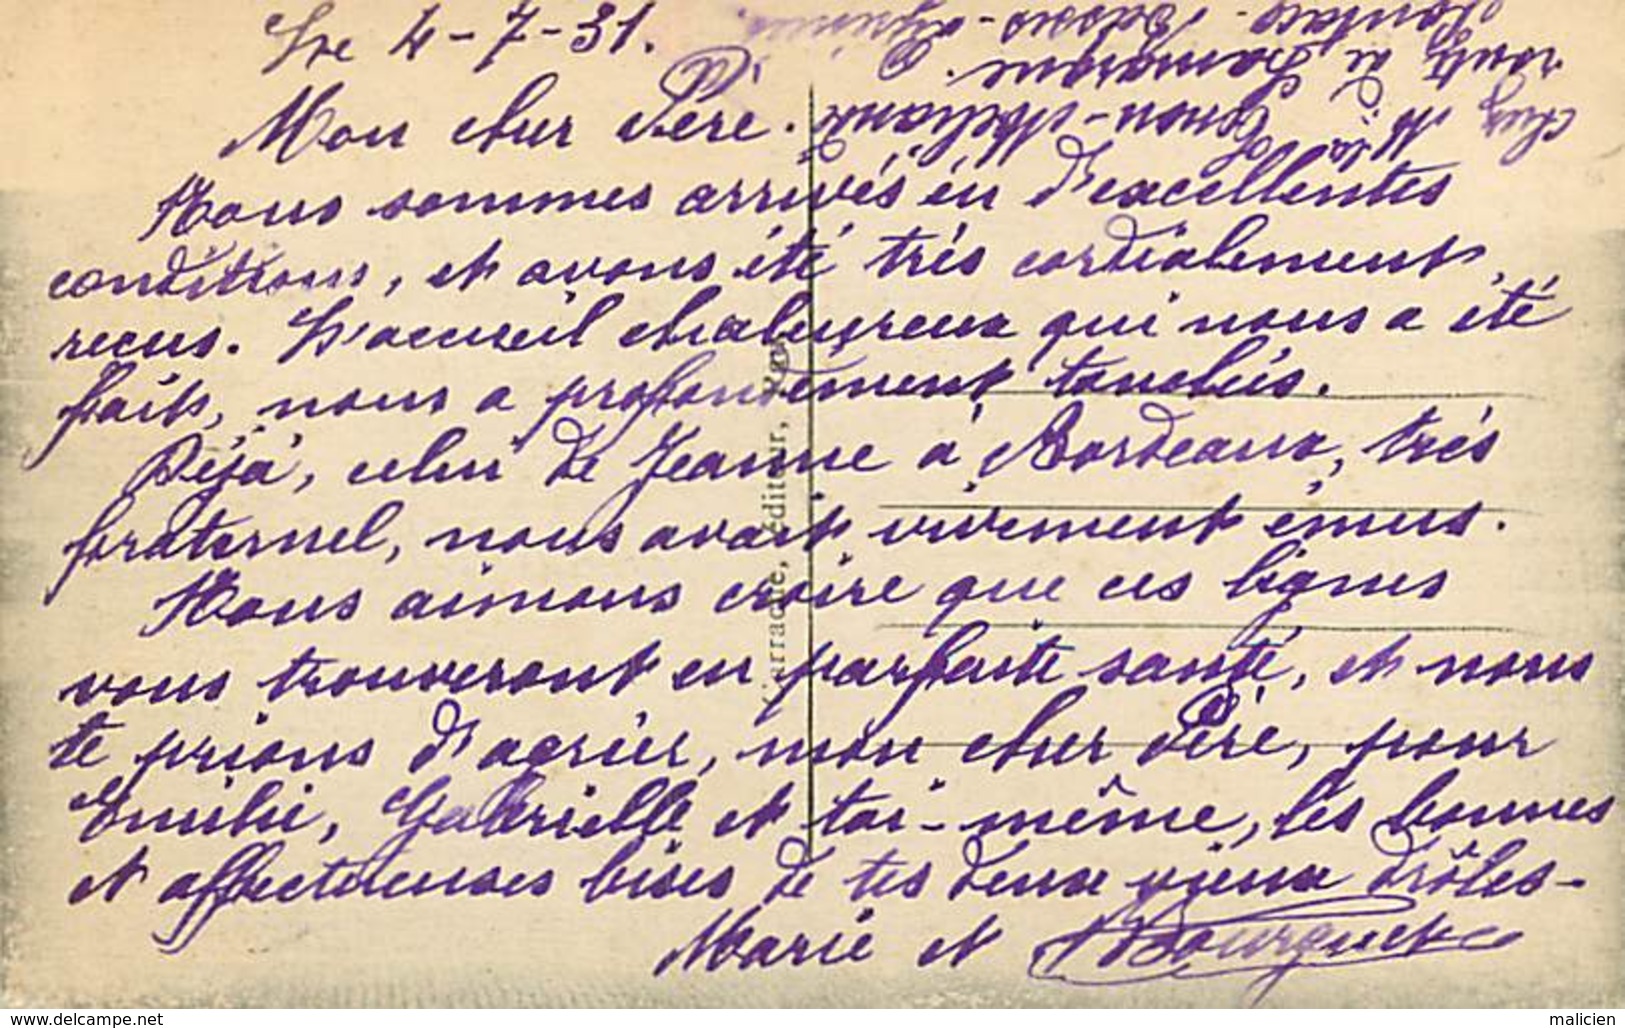 Le 4-7-31.
Mon cher Père.
Nous sommes arrivés en d'excellentes
conditions, et avons été très cordialement
reçus. L'accueil chaleureux qui nous a été
fait, nous a profondément touchés.
Déjà, celui de Jeanne à Bordeaux, très
fraternel, nous avait vivement émus.
Nous aimons croire que ces lignes
vous trouveront en parfaite santé, et nous
te prions d'agréer, mon cher Père, pour
Emilie, Gabrielle et toi-même, les bonnes
et affectueuses bises de tes deux vieux drôles-
Marie et Bourguet
chez M.
route de
Carrache, éditeur,
www.delcampe.net
malicien